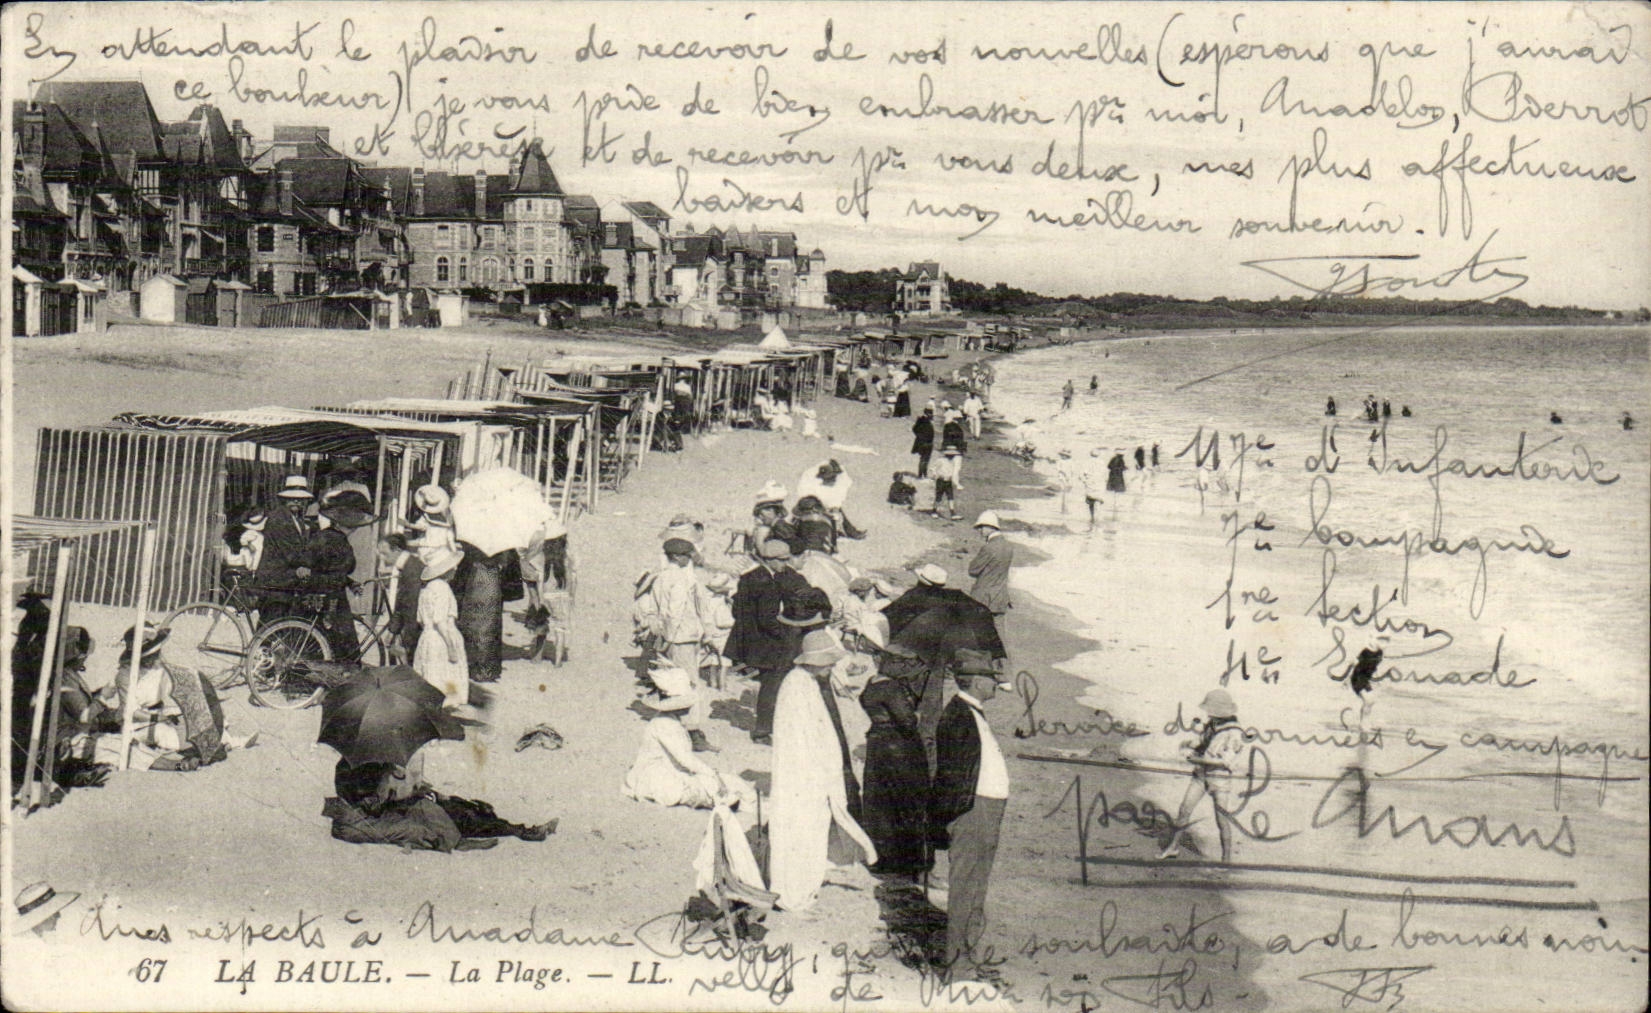 En attendant le plaisir de recevoir de vos nouvelles (espérons que j'aurai
ce bonheur) je vous prie de bien embrasser pr moi, Madelon, Pierrot
et Thérèse et de recevoir pr vous deux, mes plus affectueux
baisers et mon meilleur souvenir.
117e d'Infanterie
7e Compagnie
1re Section
4e Escouade
Service des armées en campagne
par Le Mans
Mes respects à Madame qui je le souhaite, a de bonnes nou
velles de Mr son Fils -
67 LA BAULE. — La Plage. — LL.